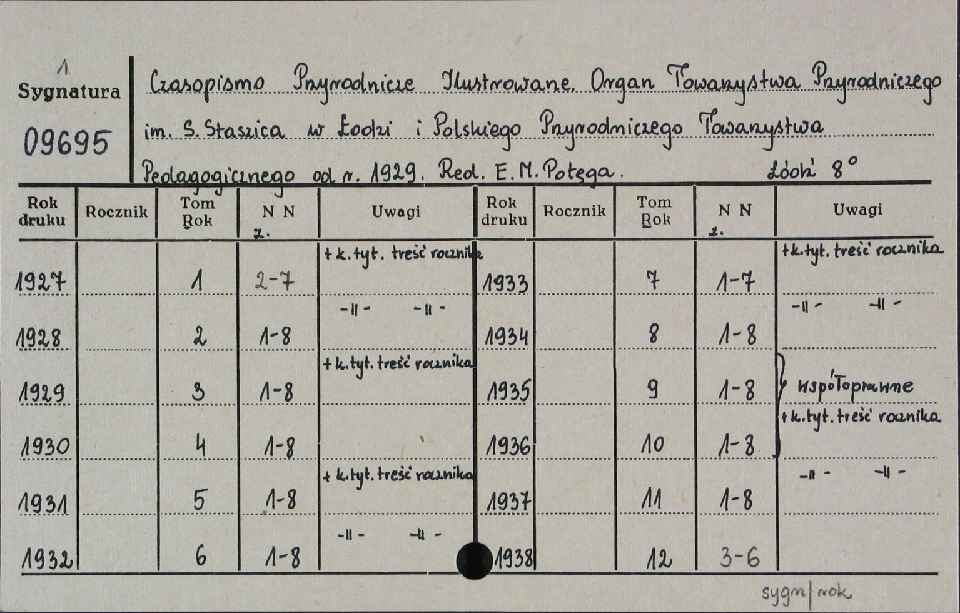 1
Sygnatura
09695
Czasopismo Przyrodnicze Ilustrowane. Organ Towarzystwa Przyrodniczego
im. S. Staszica w Łodzi i Polskiego Przyrodniczego Towarzystwa
Pedagogicznego od r. 1929. Red. E. M. Potęga. Łódź 8°
Rok druku Rocznik Tom Rok N N z. Uwagi Rok druku Rocznik Tom Rok N N z. Uwagi
1927 1 2-7 + k. tyt. treść rocznika 1933 7 1-7 + k. tyt. treść rocznika
1928 2 1-8 -"- -"- 1934 8 1-8 -"- -"-
1929 3 1-8 + k. tyt. treść rocznika 1935 9 1-8 współoprawne
1930 4 1-8 1936 10 1-8 + k. tyt. treść rocznika
1931 5 1-8 + k. tyt. treść rocznika 1937 11 1-8 -"- -"-
1932 6 1-8 -"- -"- 1938 12 3-6
sygn/rok